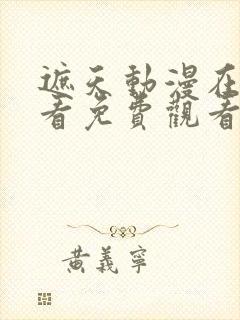 遮天動漫在
看免費觀看
黃義寧